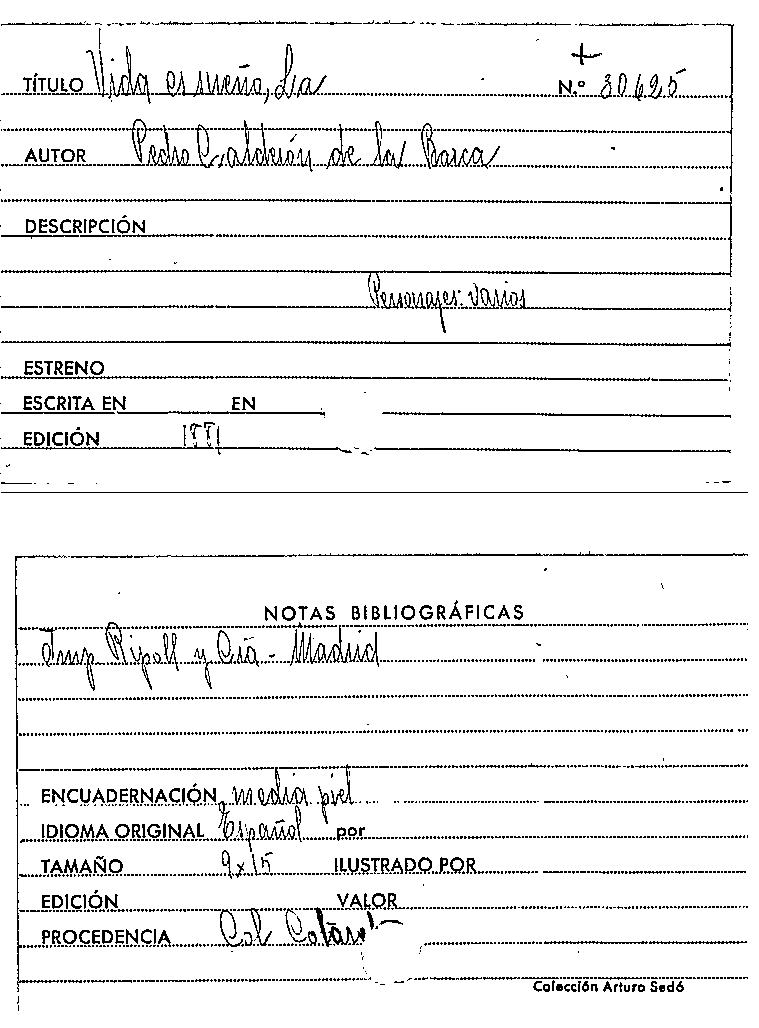 TÍTULO Vida es sueño, La N.º 30625
AUTOR Pedro Calderón de la Barca
DESCRIPCIÓN
Personajes: varios
ESTRENO
ESCRITA EN EN
EDICIÓN 1881
NOTAS BIBLIOGRÁFICAS
Imp Ripoll y Cía - Madrid
ENCUADERNACIÓN media piel
IDIOMA ORIGINAL Español por
TAMAÑO 9x15 ILUSTRADO POR
EDICIÓN VALOR
PROCEDENCIA Col
Colección Arturo Sedó